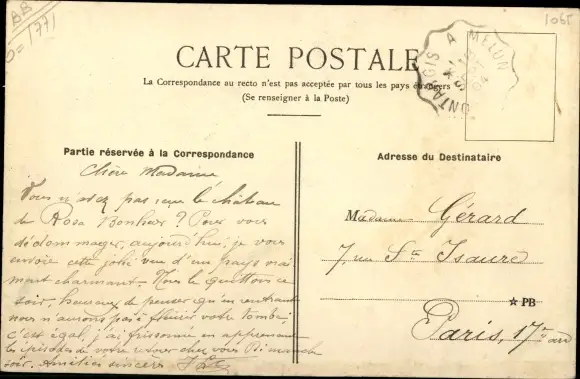 BB
D=1771
1065
MONTARGIS A MELUN
CARTE POSTALE
La Correspondance au recto n'est pas acceptée par tous les pays étrangers
(Se renseigner à la Poste)
Partie réservée à la Correspondance
Adresse du Destinataire
Chère Madame
Vous n'avez pas vu le château
de Rosa Bonheur ? Pour vous
dédommager, aujourd'hui, je vous
envoie cette jolie vue d'un pays vrai
ment charmant - Nous le quittons ce
soir, heureux de penser qu'en rentrant
nous n'aurons pas à fleurir votre tombe
c'est égal, j'ai frissonné en apprenant
les épisodes de votre retour chez vous Dimanche
soir. Amitiés sincères
Madame Gérard
7, rue Ste Isaure
☆ PB
Paris, 17e arr